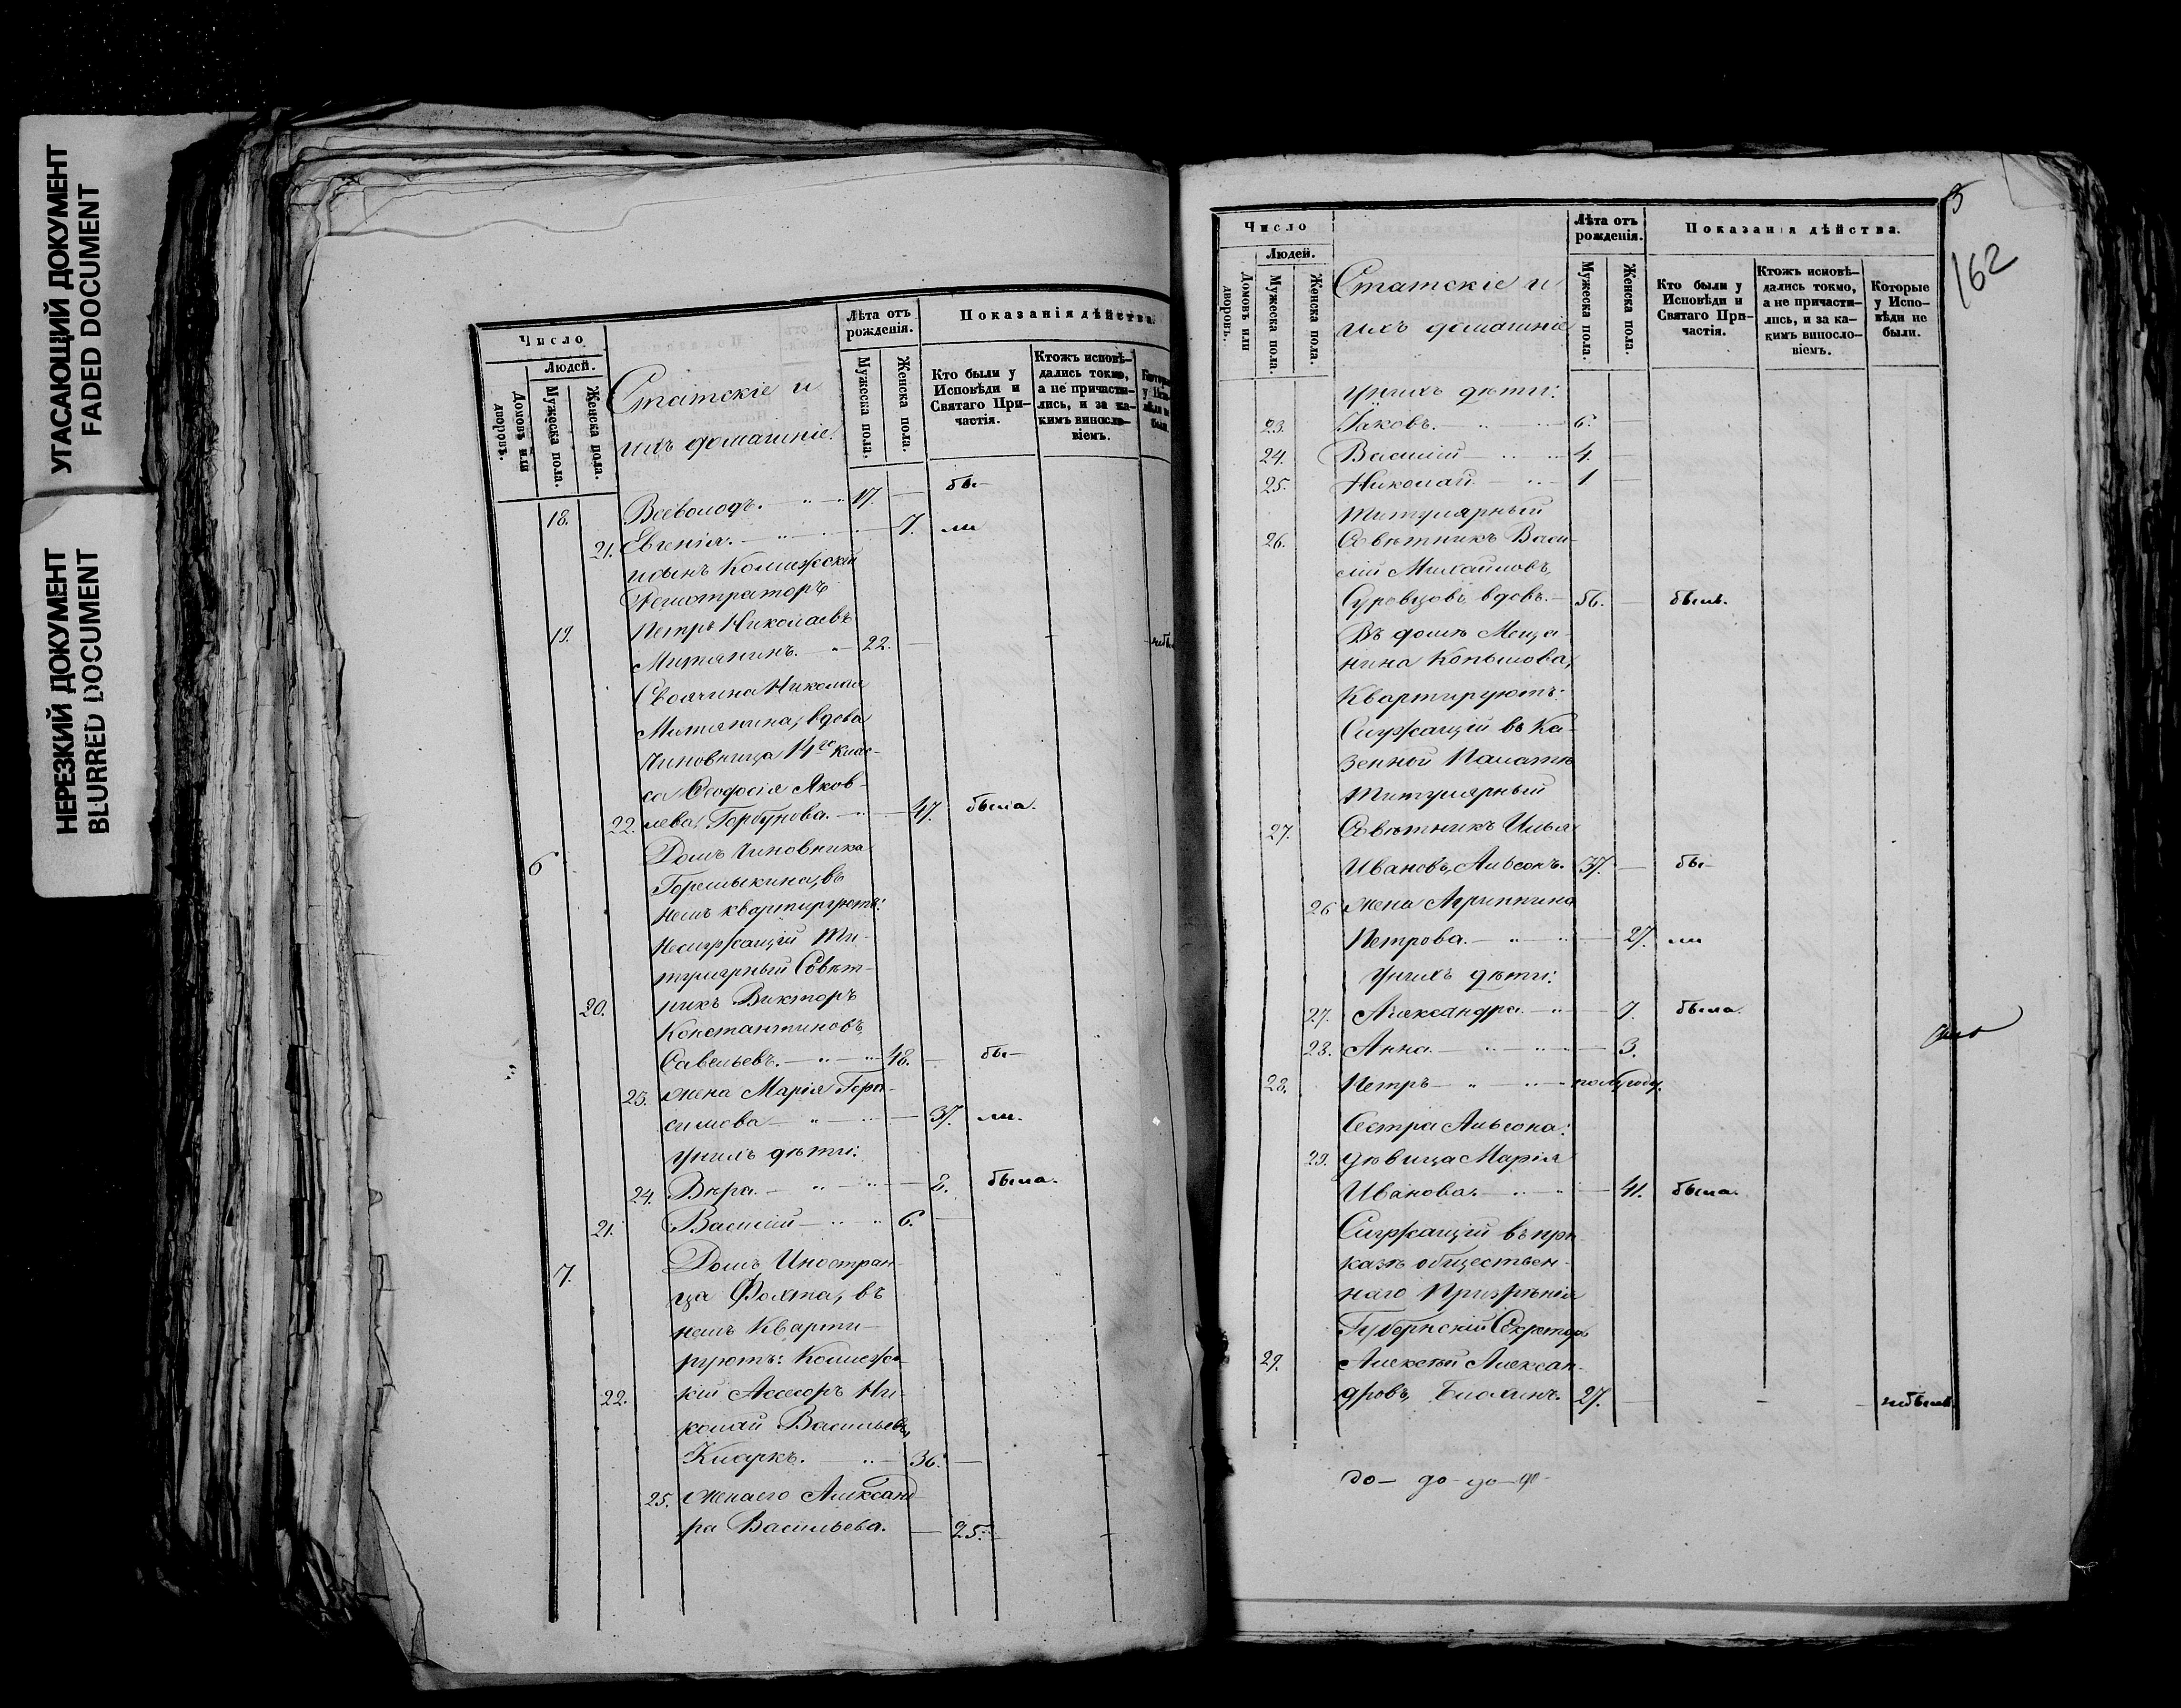 УГАСАЮЩИЙ ДОКУМЕНТ
FADED DOCUMENT
НЕРЕЗКИЙ ДОКУМЕНТ
BLURRED DOCUMENT
Число
Людей.
Домовъ или дворовъ.
Мужеска пола.
Женска пола.
Статскіе и
ихъ домашніе.
Лѣта отъ рожденія.
Мужеска пола.
Женска пола.
Показанія дѣйства.
Кто были у Исповѣди и Святаго Причастія.
Ктожъ исповѣдались токмо, а не причастились, и за какимъ винословіемъ.
18. Всеволодъ. — " — 17. — бы—
21. Евгенія. — " — 7. ли
Регистраторъ
19. Петръ Николаевъ
Митянинъ. — " — 22. —
Своячина Николая
Митянина, вдова
Чиновница 14го клас-
са Феодосія Яков-
22. лева, Горбунова. — 47. была.
6 Домъ Чиновника
Горемыкина, въ
немъ квартируютъ:
Неслужащій Ти-
тулярный Совѣт-
20. никъ Викторъ
Константиновъ,
Савельевъ. — " — 48. — бы—
23. жена Марія Гера-
симова — " — 37. ли.
у нихъ дѣти:
24. Вѣра. — " — " — 8. была.
21. Василій — " — " 6. —
7. Домъ Иностран-
ца Фохта, въ
немъ Кварти-
руютъ: Коллежс-
22. кій Ассесоръ Ни-
колай Васильевъ,
Кларкъ. " — 36. —
25. жена его Александ-
ра Васильева. — 25. —
3
162
Число
Людей.
Домовъ или дворовъ.
Мужеска пола.
Женска пола.
Статскіе и
ихъ домашніе
Лѣта отъ рожденія.
Мужеска пола.
Женска пола.
Показанія дѣйства.
Кто были у Исповѣди и Святаго Причастія.
Ктожъ исповѣдались токмо, а не причастились, и за какимъ винословіемъ.
Которые у Исповѣди не были.
у нихъ дѣти:
23. Іаковъ. — " — 6. —
24. Василій — " — 4. —
25. Николай — " — 1 —
Титулярный
26. Совѣтникъ Васи-
лій Михайловъ,
Суровцовъ, вдовъ. — 56. — былъ.
Въ домѣ Меща-
нина Копылова,
Квартируютъ:
Служащій въ Ка-
зенной Палатѣ
Титулярный
27. Совѣтникъ Илья
Ивановъ, Альсонъ. 37. — бы—
26 жена Агриппина
Петрова. — " — 27. ли
у нихъ дѣти:
27. Александра. — " — 7. была.
28. Анна. — " — " — 3.
28. Петръ — " — " — полугоду.
Сестра Альсона:
29. дѣвица Марія
Иванова. — " — 41. была.
Служащій въ при-
казѣ обществен-
наго Призрѣнія
Губернскій Секретарь
29. Алексѣй Алексан-
дровъ, 27. — — — небылъ.
до — до — до — до —